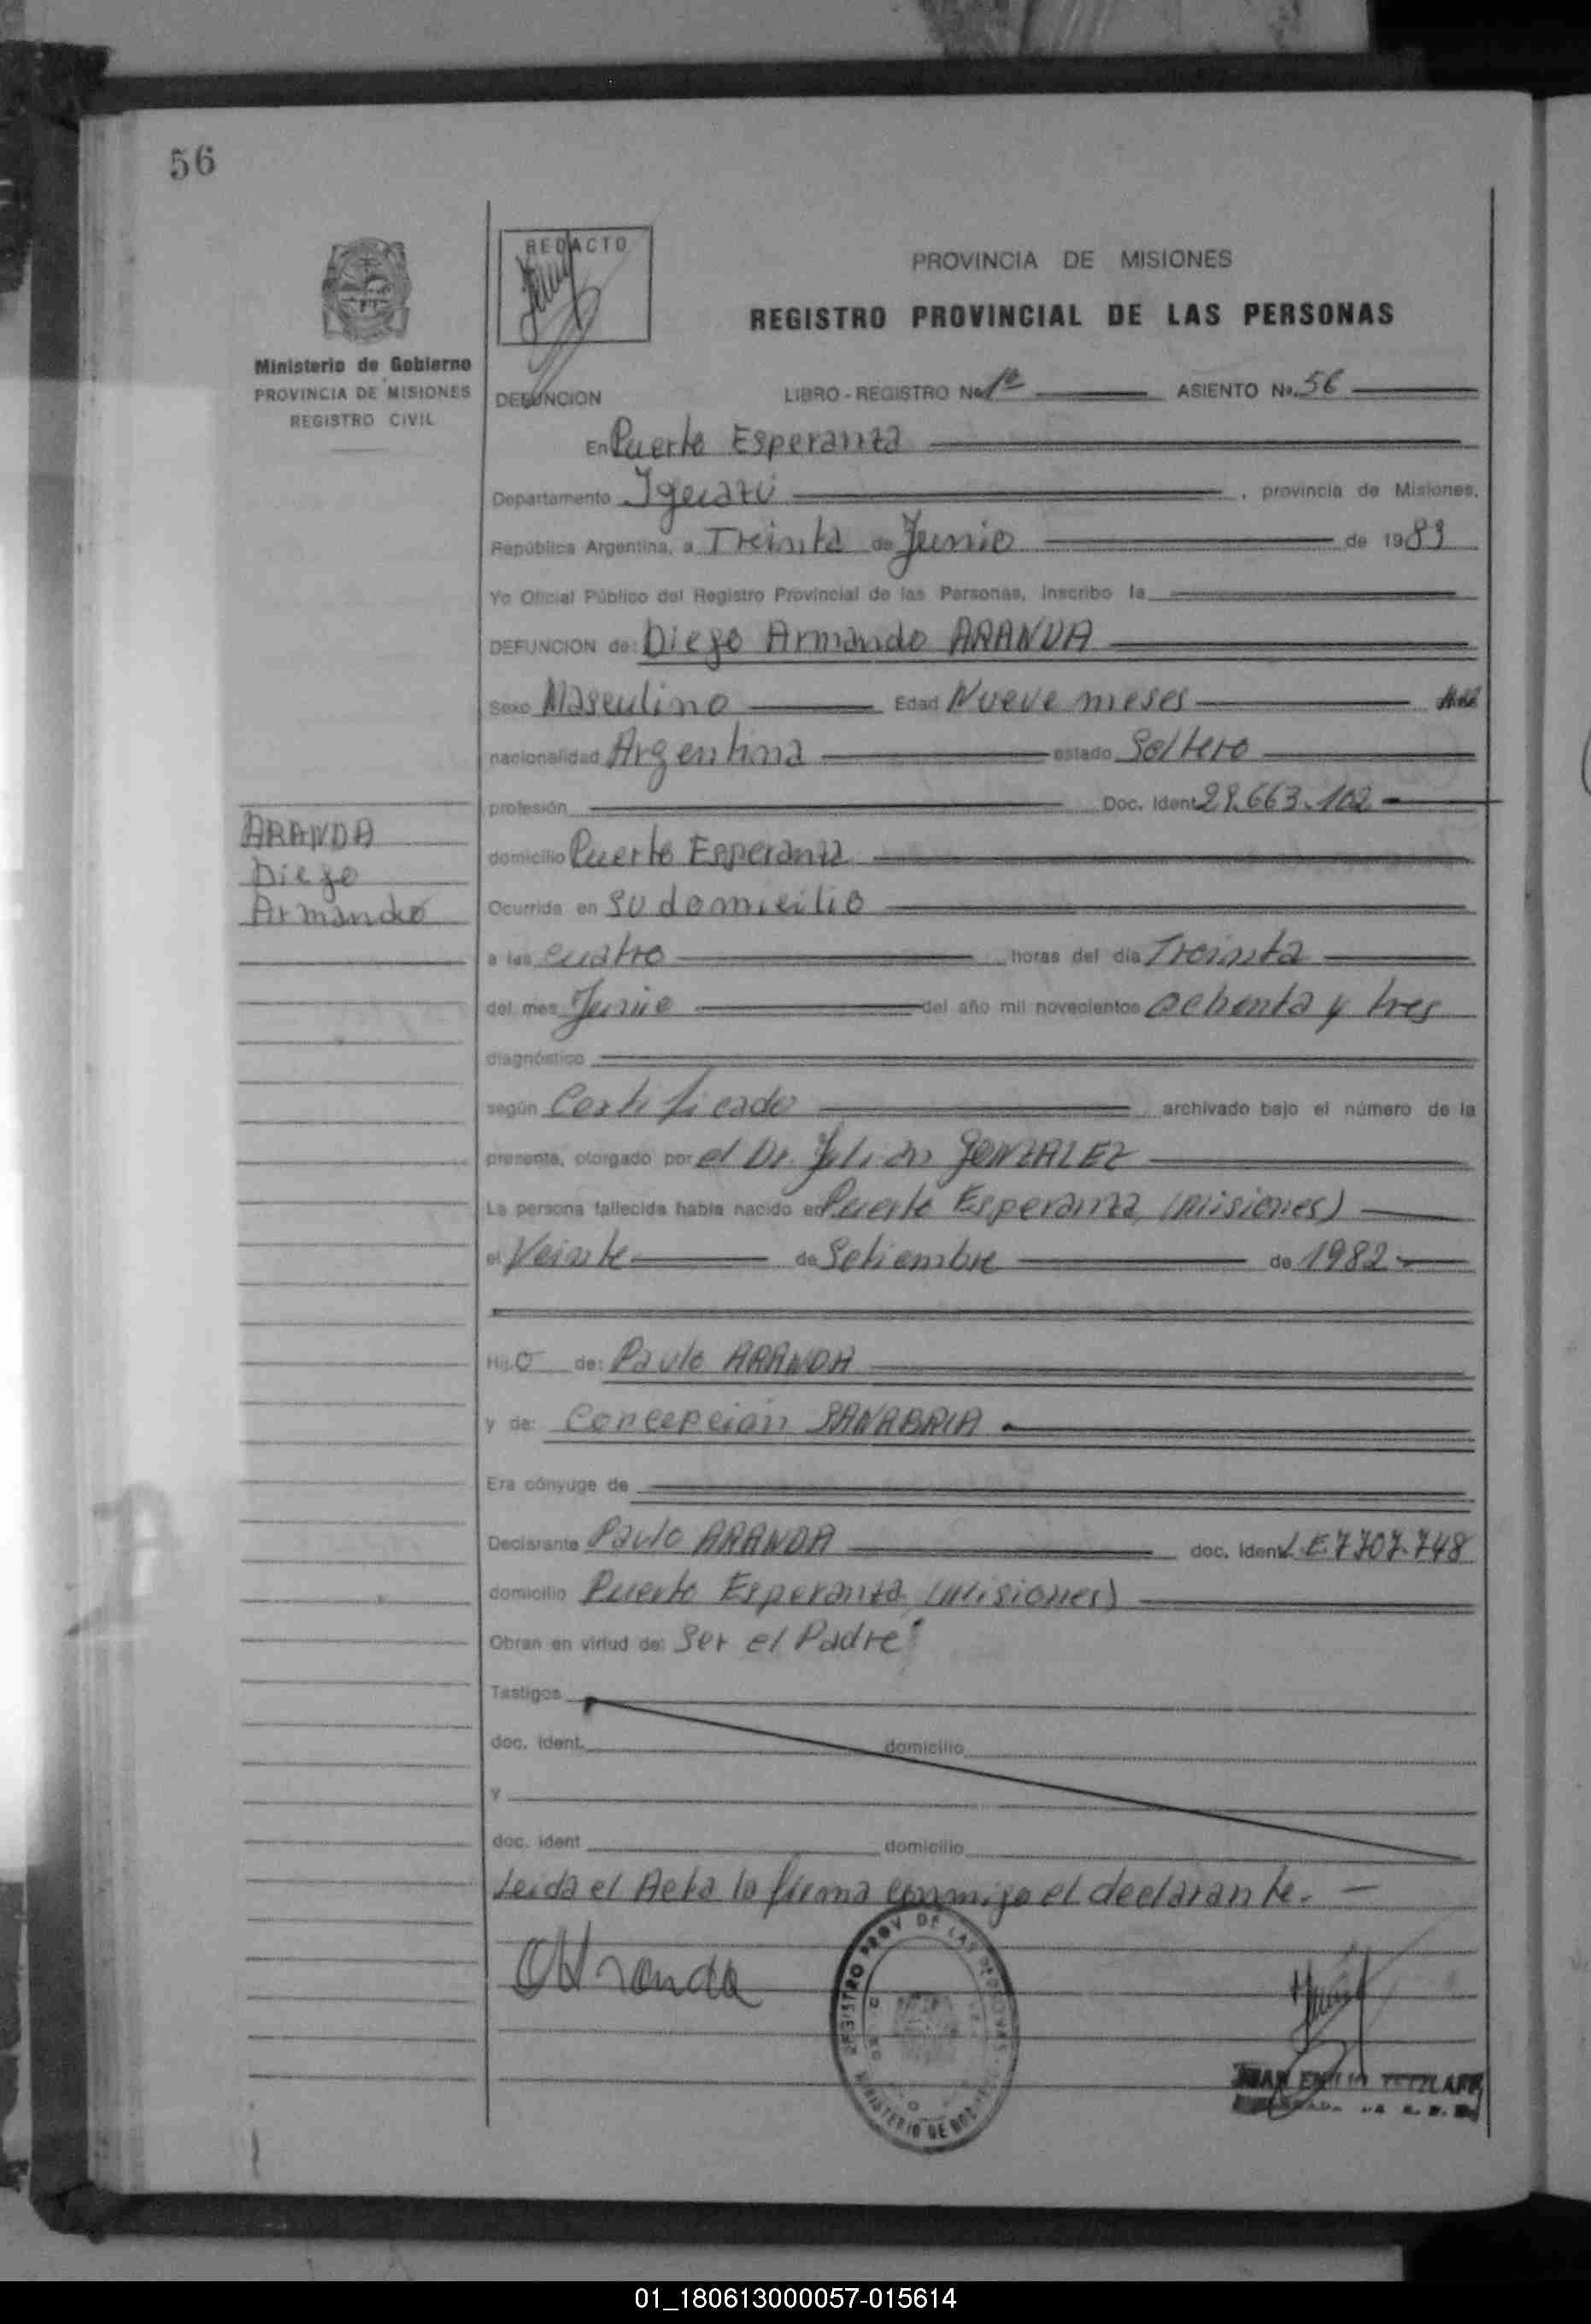 56
REDACTO
PROVINCIA DE MISIONES
REGISTRO PROVINCIAL DE LAS PERSONAS
Ministerio de Gobierno
PROVINCIA DE MISIONES
REGISTRO CIVIL
DEFUNCION LIBRO - REGISTRO No. 1º ASIENTO No. 56
En Puerto Esperanza
Departamento Iguazú , provincia de Misiones,
República Argentina, a Treinta de Junio de 1983
Yo Oficial Público del Registro Provincial de las Personas, inscribo la
DEFUNCION de: Diego Armando ARANDA
Sexo Masculino Edad Nueve meses
nacionalidad Argentina estado Soltero
profesión Doc. Ident. 29.663.102
ARANDA
Diego
Armando
domicilio Puerto Esperanza
Ocurrida en su domicilio
a las cuatro horas del día Treinta
del mes Junio del año mil novecientos ochenta y tres
diagnóstico
según Certificado archivado bajo el número de la
presente, otorgado por el Dr. Julián GONZALEZ
La persona fallecida había nacido en Puerto Esperanza, (Misiones)
el Veinte de Setiembre de 1982
Hijo de: Paulo ARANDA
y de: Concepción SANABRIA
Era cónyuge de
Declarante Paulo ARANDA doc. ident. L.E.7707.748
domicilio Puerto Esperanza, (Misiones)
Obran en virtud de: Ser el Padre
Testigos
doc. ident. domicilio
Y
doc. ident domicilio
Leida el Acta la firma conmigo el declarante.
Aranda
REGISTRO PROV DE LAS PERSONAS
MINISTERIO DE GOB
JUAN EMILIO TETZLAFF
01_180613000057-015614